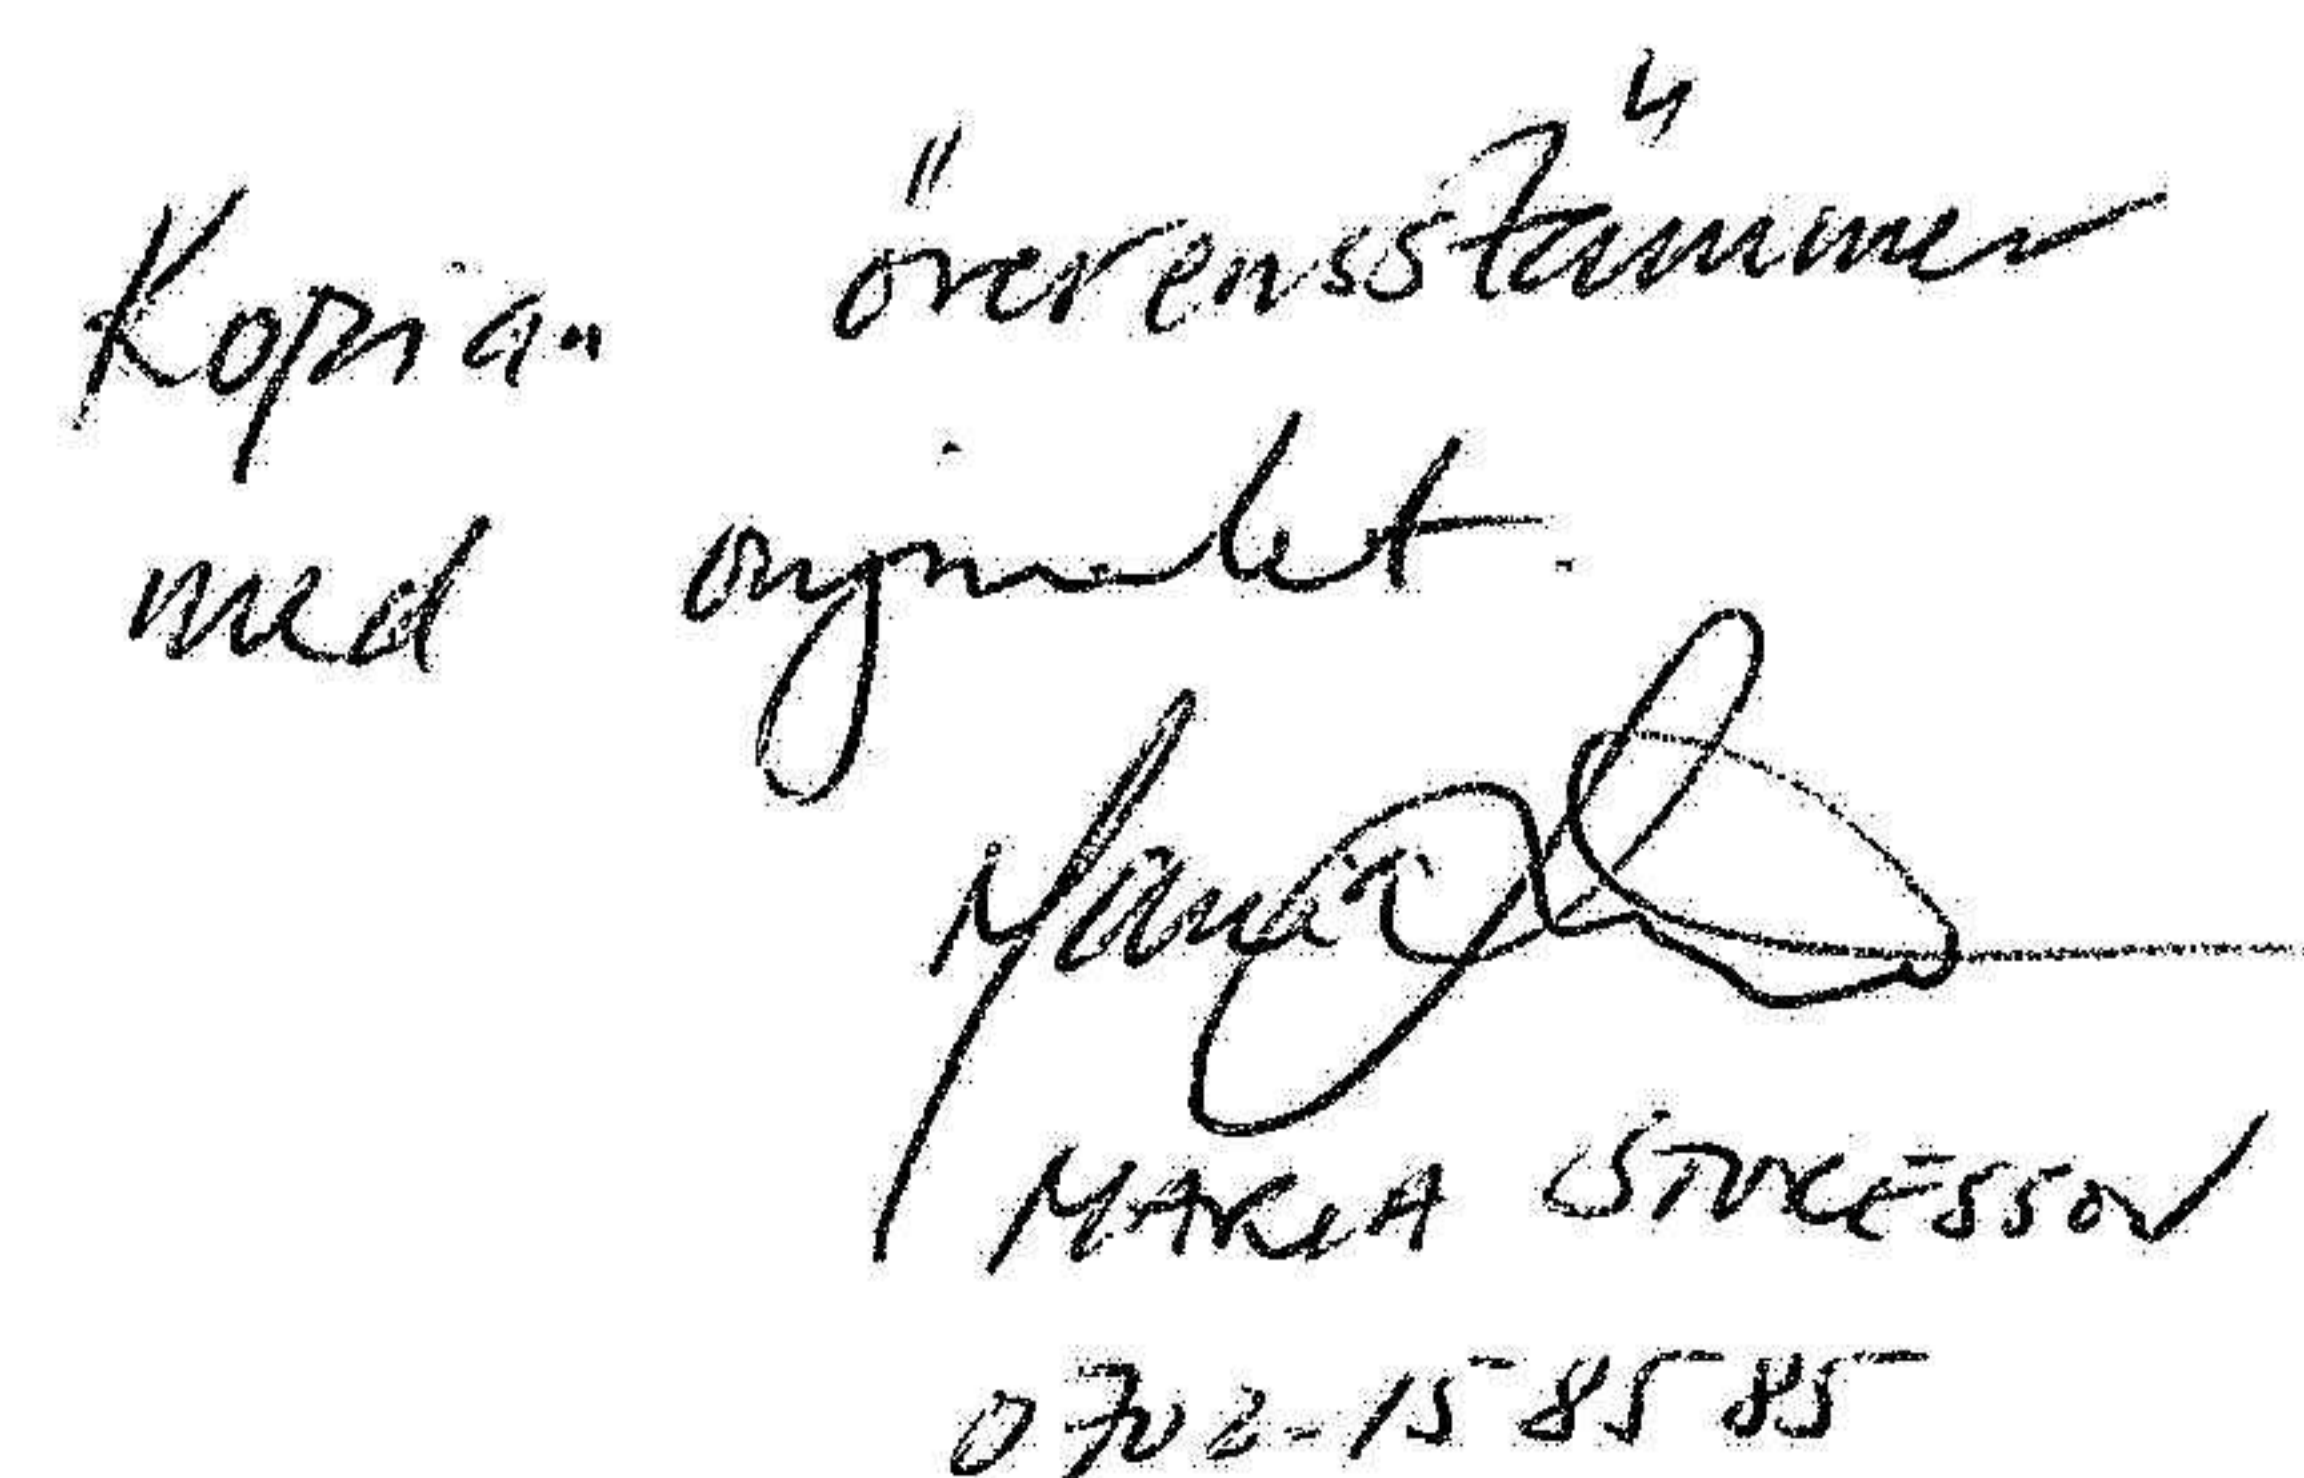 Kopian överensstämmer
med orginalet.
Maria
MARIA
0702-15 85 85